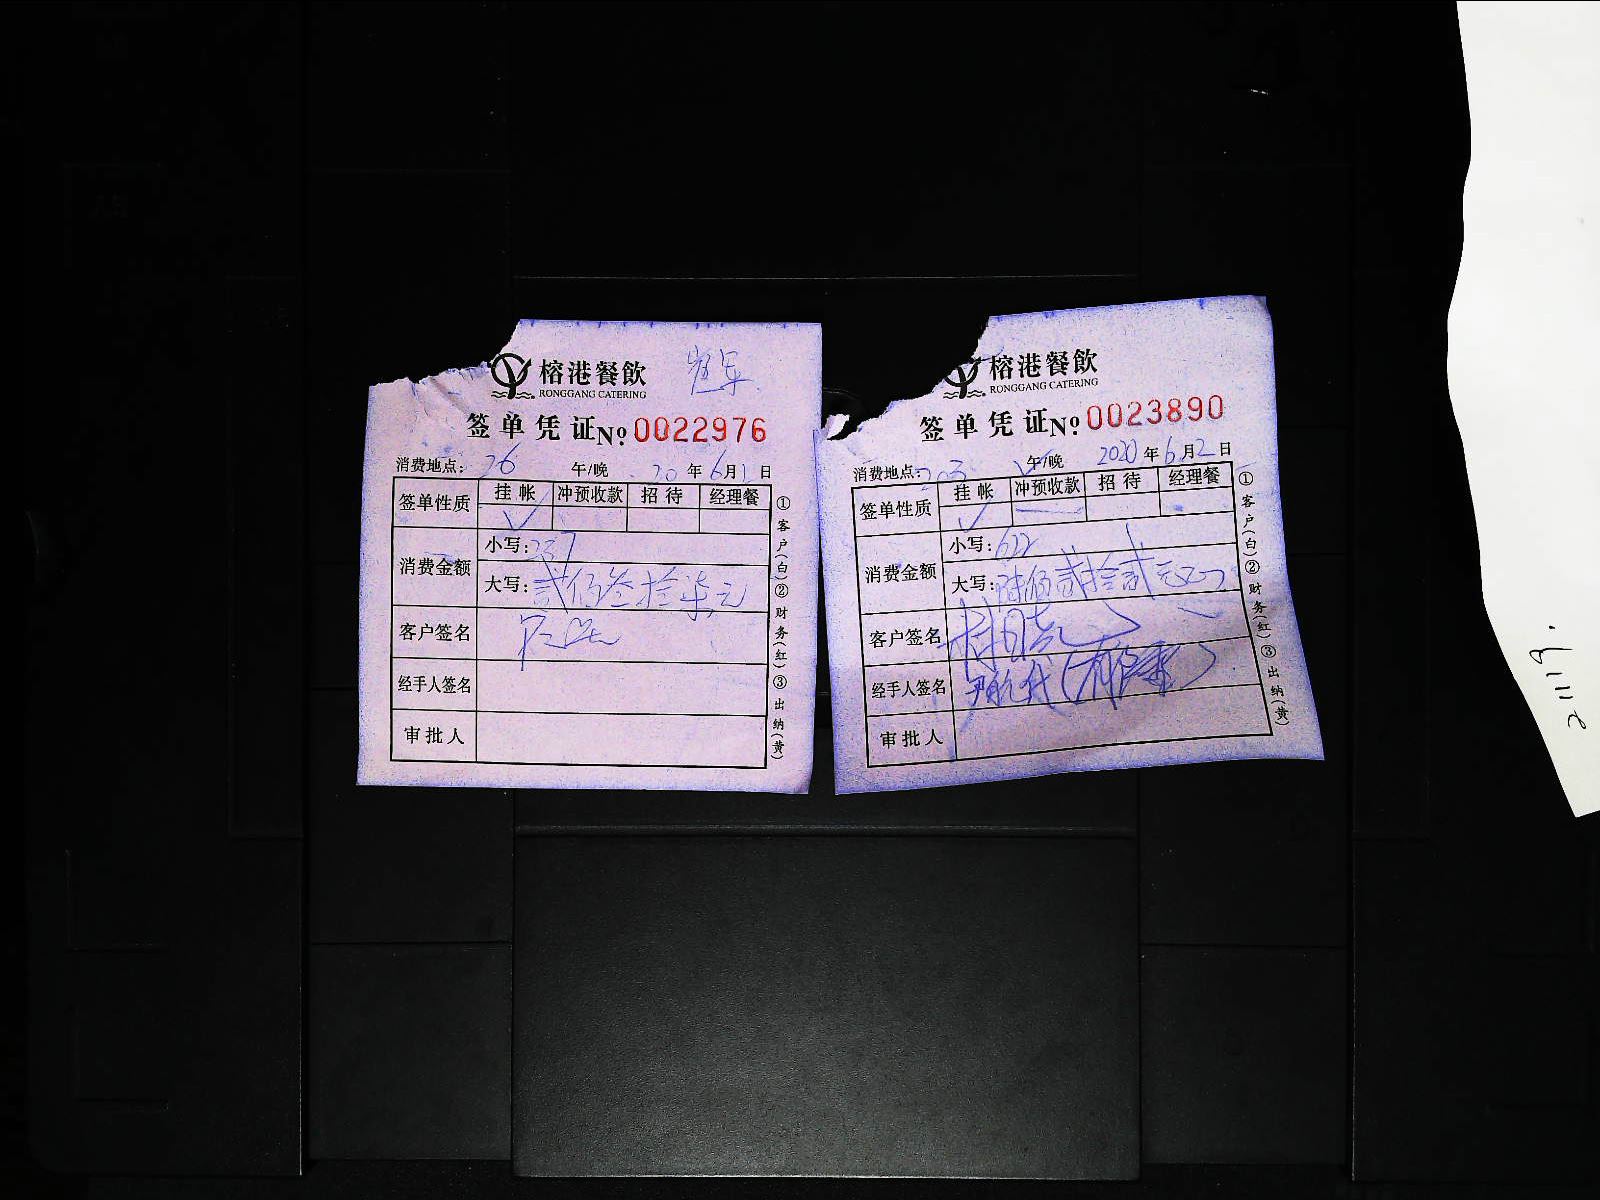 榕港餐飲
RONGGANG CATERING
签单凭证 No 0022976
消费地点: 26 午/晚 20 年 6 月 2 日
签单性质 挂帐 冲预收款 招待 经理餐
✓
消费金额 小写: 237
大写: 贰佰叁拾柒元
客户签名
经手人签名
审批人
①客户(白)②财务(红)③出纳(黄)
榕港餐飲
RONGGANG CATERING
签单凭证 No 0023890
消费地点: 203 午/晚 2020 年 6 月 2 日
签单性质 挂帐 冲预收款 招待 经理餐
✓
消费金额 小写: 622
大写: 陆佰贰拾贰元
客户签名
经手人签名
审批人
①客户(白)②财务(红)③出纳(黄)